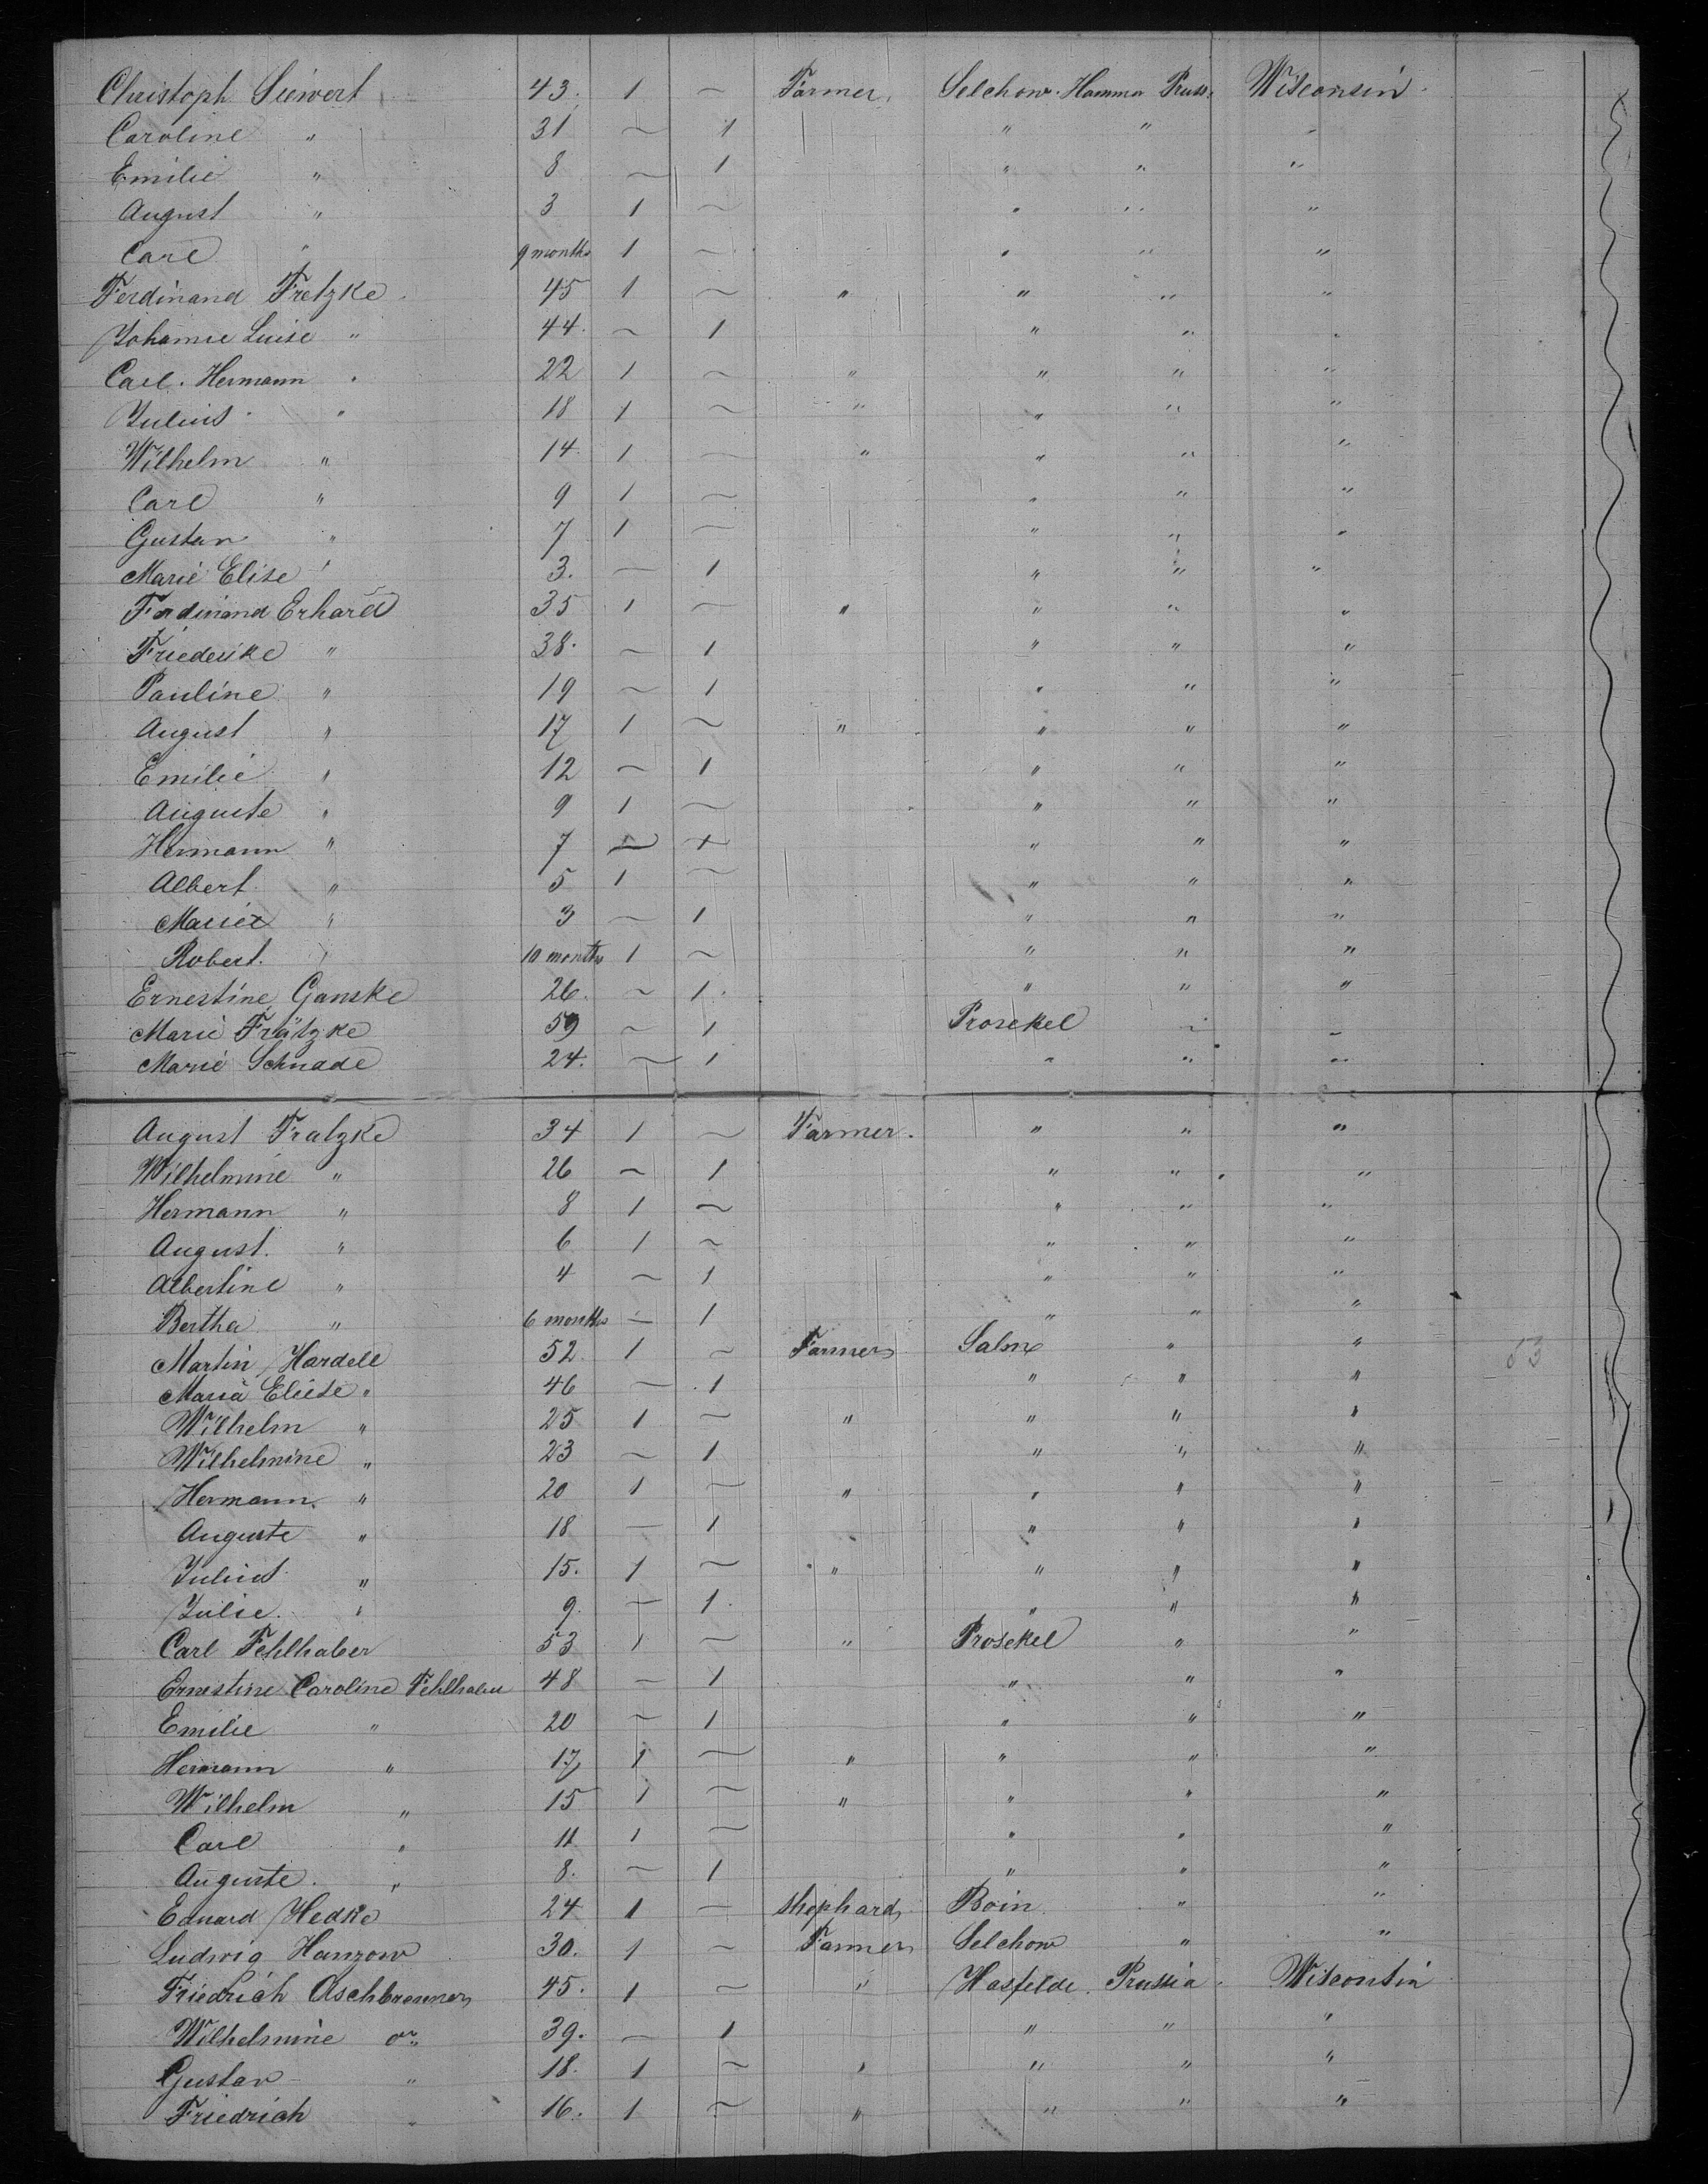 Christoph Siewert 43. 1 ~ Farmer, Selchow Hammer Pruss. Wisconsin
Caroline " 31 ~ 1 " " "
Emilie " 8 ~ 1 " " "
August " 3 1 ~ " " "
Carl " 9 months 1 ~ " " "
Ferdinand Fretzke 45 1 ~ " " " "
Johanne Luise " 44. ~ 1 " " "
Carl. Hermann " 22 1 ~ " " " "
Julius " 18 1 ~ " " " "
Wilhelm " 14. 1 ~ " " " "
Carl " 9 1 ~ " " "
Gustav " 7 1 ~ " " "
Marie Elise " 3. ~ 1 " " "
Ferdinand Erhard 35 1 ~ " " " "
Friederike " 38. ~ 1 " " "
Pauline " 19 ~ 1 " " "
August " 17 1 ~ " " " "
Emilie " 12 ~ 1 " " "
Auguste " 9 1 ~ " " "
Hermann " 7 " " "
Albert " 5 1 ~ " " "
Marie " 3 ~ 1 " " "
Robert. " 10 months 1 ~ " " "
Ernestine Ganske 26. ~ 1. " " "
Marie Frätzke 59 ~ 1 Prosekel " "
Marie Schnade 24. ~ 1 " " "
August Fratzke 34 1 ~ Farmer. " " "
Wilhelmine " 26 ~ 1 " " "
Hermann " 8 1 ~ " " "
August. " 6 1 ~ " " "
Albertine " 4 ~ 1 " " "
Bertha " 6 months ~ 1 " " "
Martin Hardell 52. 1 ~ Farmer Salm " " 53
Maria Eliese " 46 ~ 1 " " "
Wilhelm " 25 1 ~ " " " "
Wilhelmine " 23 ~ 1 " " "
Hermann. " 20 1 ~ " " " "
Auguste " 18 ~ 1 " " "
Julius " 15. 1 ~ " " " "
Julie. " 9. ~ 1. " " "
Carl Fehlhaber 53 1 ~ " Prosekel " "
Ernestine Caroline Fehlhaber 48 ~ 1 " " "
Emilie " 20 ~ 1 " " "
Hermann " 17 1 ~ " " " "
Wilhelm " 15 1 ~ " " " "
Carl " 11 1 ~ " " "
Auguste. " 8. ~ 1 " " "
Eduard Hedke 24 1 ~ shephard Boin " "
Ludwig Hanzow 30. 1 ~ Farmer Selchow " "
Friedrich Aschbrenner 45. 1 ~ " Hasfelde. Prussia Wisconsin
Wilhelmine " 39. ~ 1 " " "
Gustav " 18. 1 ~ " " " "
Friedrich " 16. 1 ~ " " " "